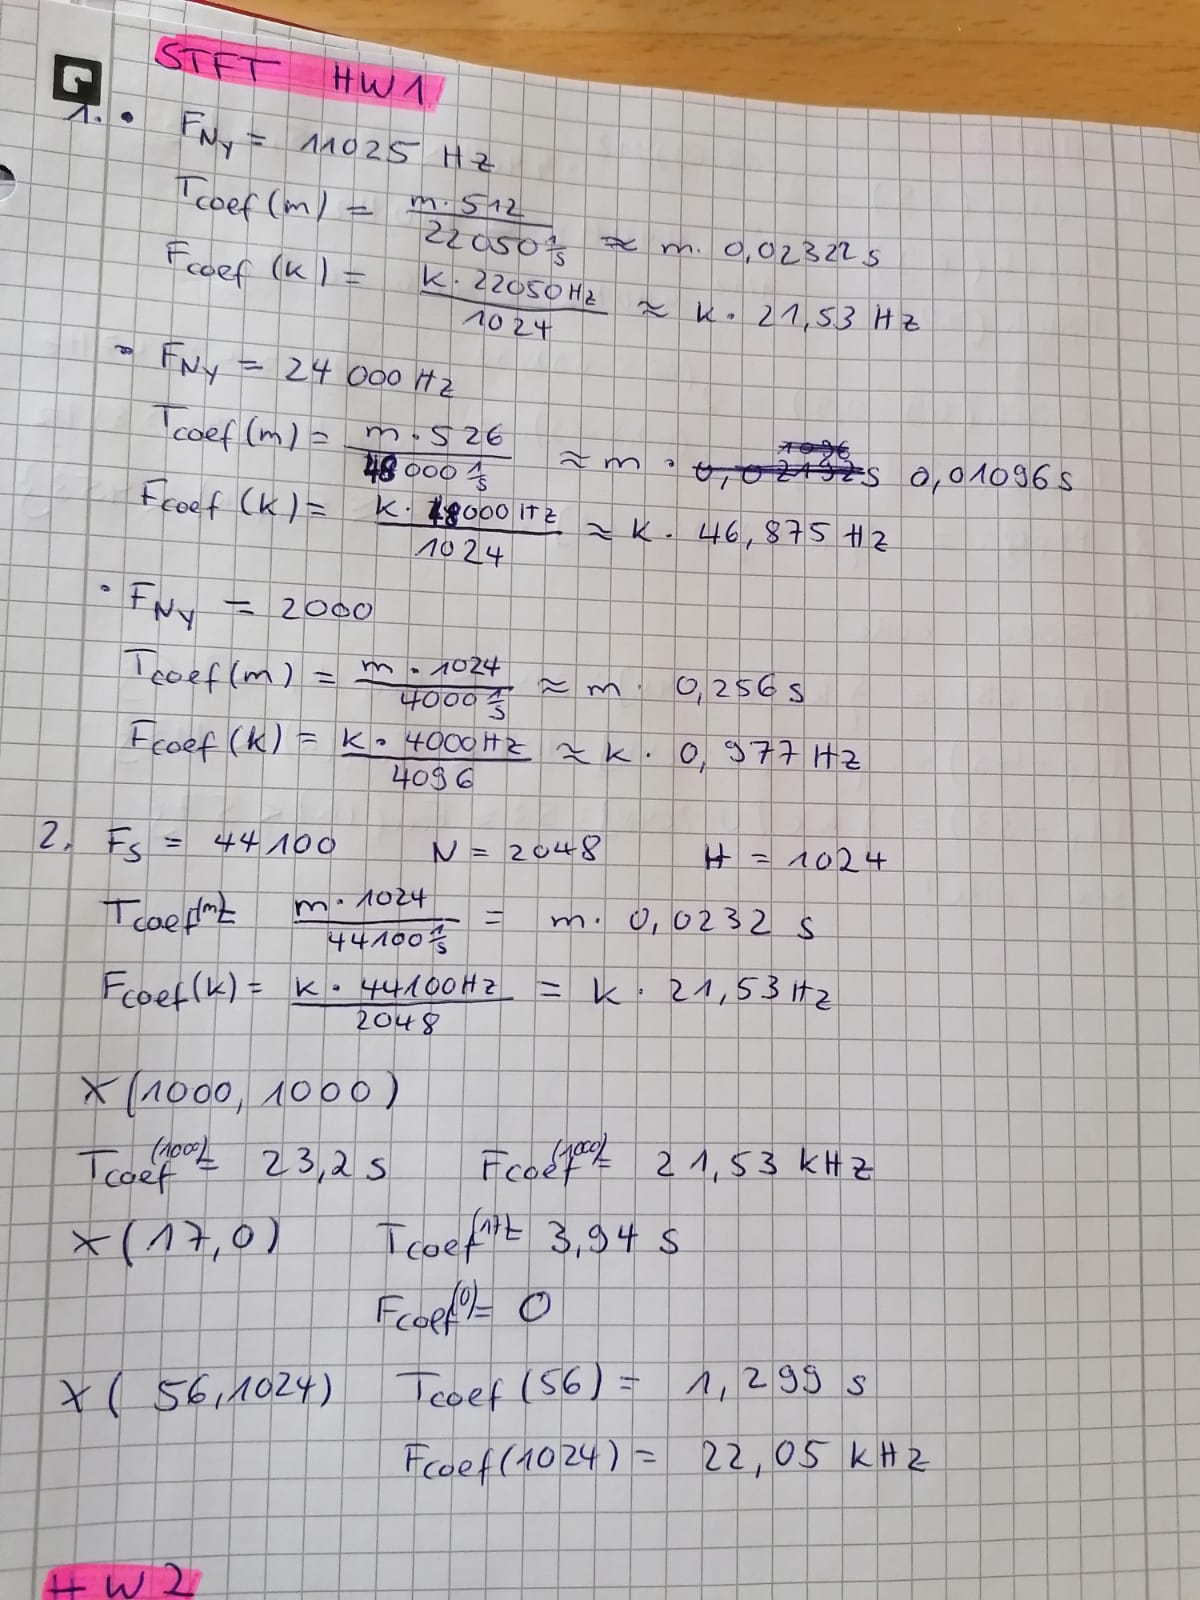 STFT HW1
1. • F_Ny = 11025 Hz
T_coef(m) = m·512 / 22050 1/s ≈ m· 0,02322 s
F_coef(k) = k·22050Hz / 1024 ≈ k· 21,53 Hz
• F_Ny = 24 000 Hz
T_coef(m) = m·526 / 48000 1/s ≈ m· 0,01096 s
F_coef(k) = k·48000Hz / 1024 ≈ k· 46,875 Hz
• F_Ny = 2000
T_coef(m) = m·1024 / 4000 1/s ≈ m· 0,256 s
F_coef(k) = k·4000Hz / 4096 ≈ k· 0,977 Hz
2. F_s = 44100 N = 2048 H = 1024
T_coef(m)= m·1024 / 44100 1/s = m· 0,0232 s
F_coef(k) = k·44100Hz / 2048 = k· 21,53 Hz
X(1000, 1000)
T_coef(1000)= 23,2 s F_coef(1000)= 21,53 kHz
X(17,0) T_coef(17)= 3,94 s
F_coef(0)= 0
X( 56,1024) T_coef(56) = 1,299 s
F_coef(1024) = 22,05 kHz
HW2